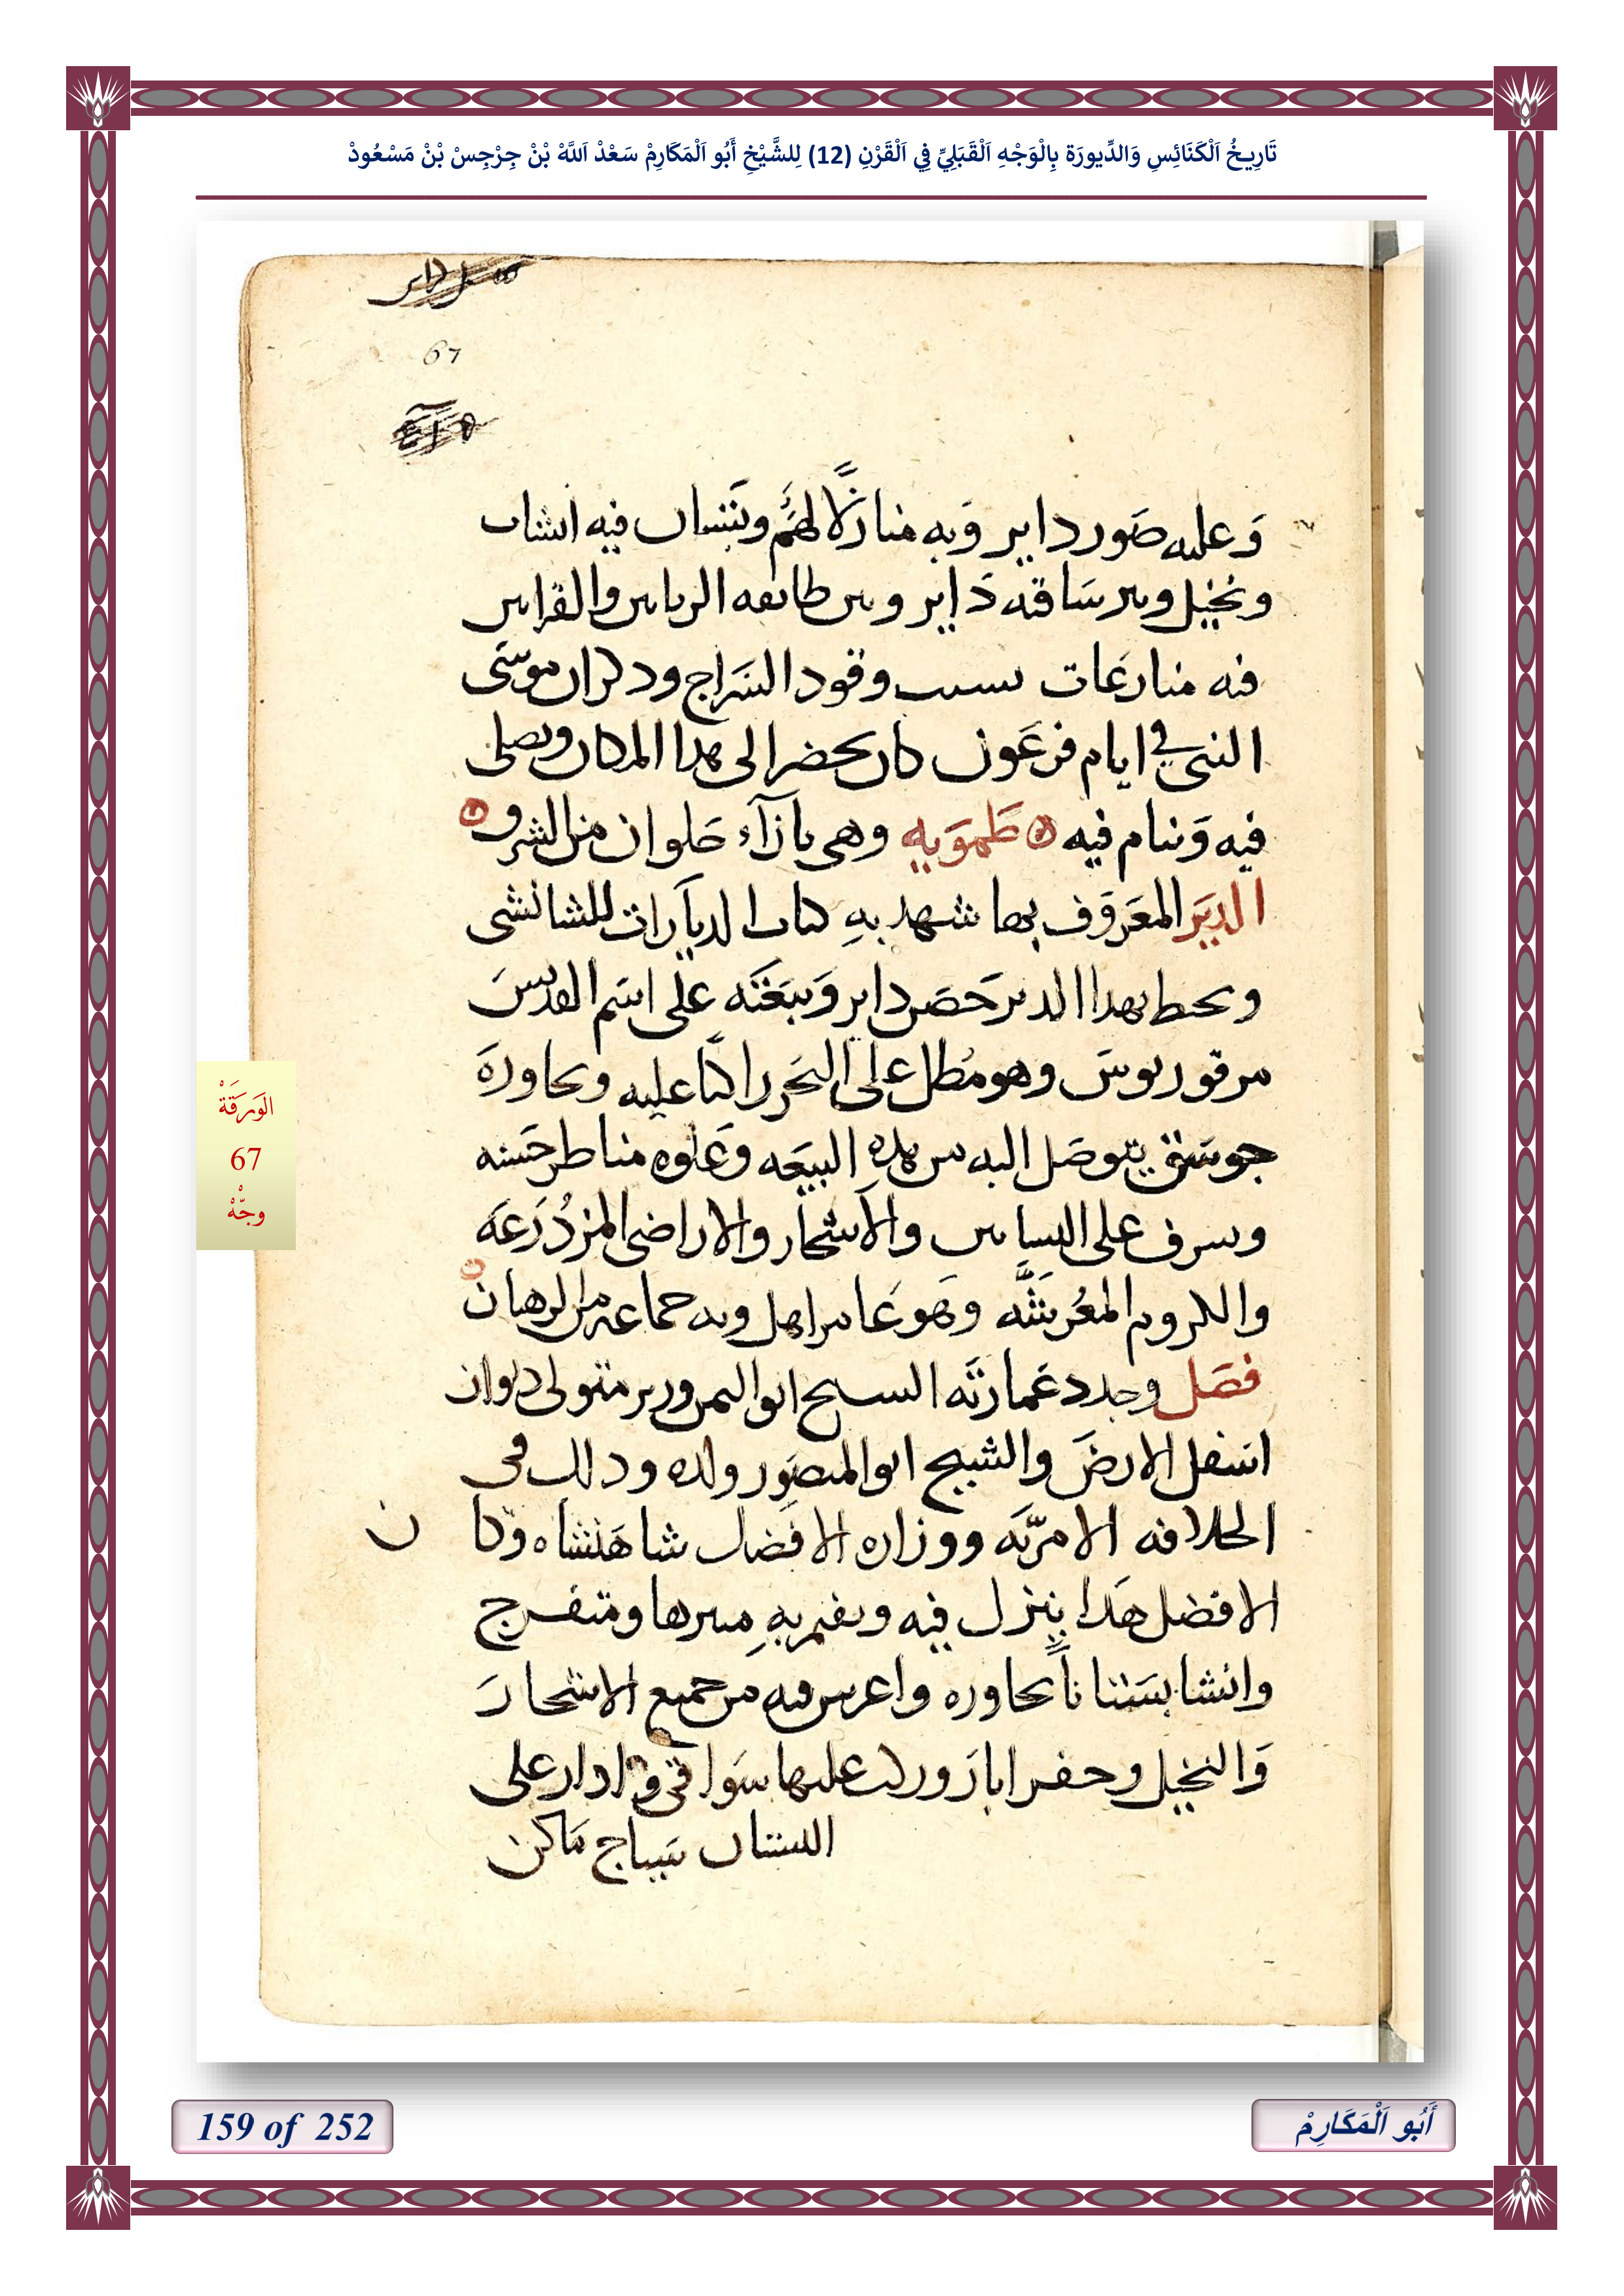 تَارِيخُ اَلْكَنَائِسِ وَالدِّيورَة بِالْوَجْهِ اَلْقَبَلِيِّ فِي اَلْقَرْنِ (12) لِلشَّيْخِ أَبُو اَلْمَكَارِمْ سَعْدْ اَللَّهْ بْنْ جِرْجِسْ بْنْ مَسْعُودْ
67
وَعليه صَور داير وَبه منازلًا لهم وبستان فيه انشاب
ونخيل وبير سَاقيه دَاير وبين طايفه الربانين والقرايين
فيه منازعَات بسبب وقود السَراج وذكر ان موسَى
النبى في ايام فرعَون كان يحضر الى هذا المكان ويصلى
فيه وَينام فيه طَموَيه وهى بازآء حَلوان من الشرق
الديَر المعَروَف بها شهد بهِ كتاب الديَارات للشابشتى
ويحيط بهذا الدير حَصَن داير وَبيعَتَه على اسَم القديسَ
مرقوريوسَ وهو مُطل على البحَر راكبًا عليه ويجاورهَ
جوسَق يتوصَل اليه من هذهِ البيعَه وَعلوه مناظر حَسنه
ويشرف على البساتين والاشجار والاراضى المزدُرَعَه
والكروم المعُرشَّه وَهَو عَامر اهل وبه جماعه من الرهبان
فصَل وجدد عَمارتَه الشيخ ابو اليمن وزير متولى ديوان
اسَفل الارضَ والشيخ ابو المنصَور ولده وذلك فى
الخلافه الامريَه ووزاره الافضَل شاهَنشاه وكا ن
الافضل هَذا ينزل فيه ويقيم بهِ متنزها ومتفرج
وانشا بسَتانًا يجاوره واغرس فيه من جميع الاشجارَ
وَالنخيل وحفر ابارَ وركب عليها سَواقى وادار على
البستان سَياج مَاكن
الوَرَقَةْ
67
وجّهْ
159 of 252
أَبُو اَلْمَكَارِمْ